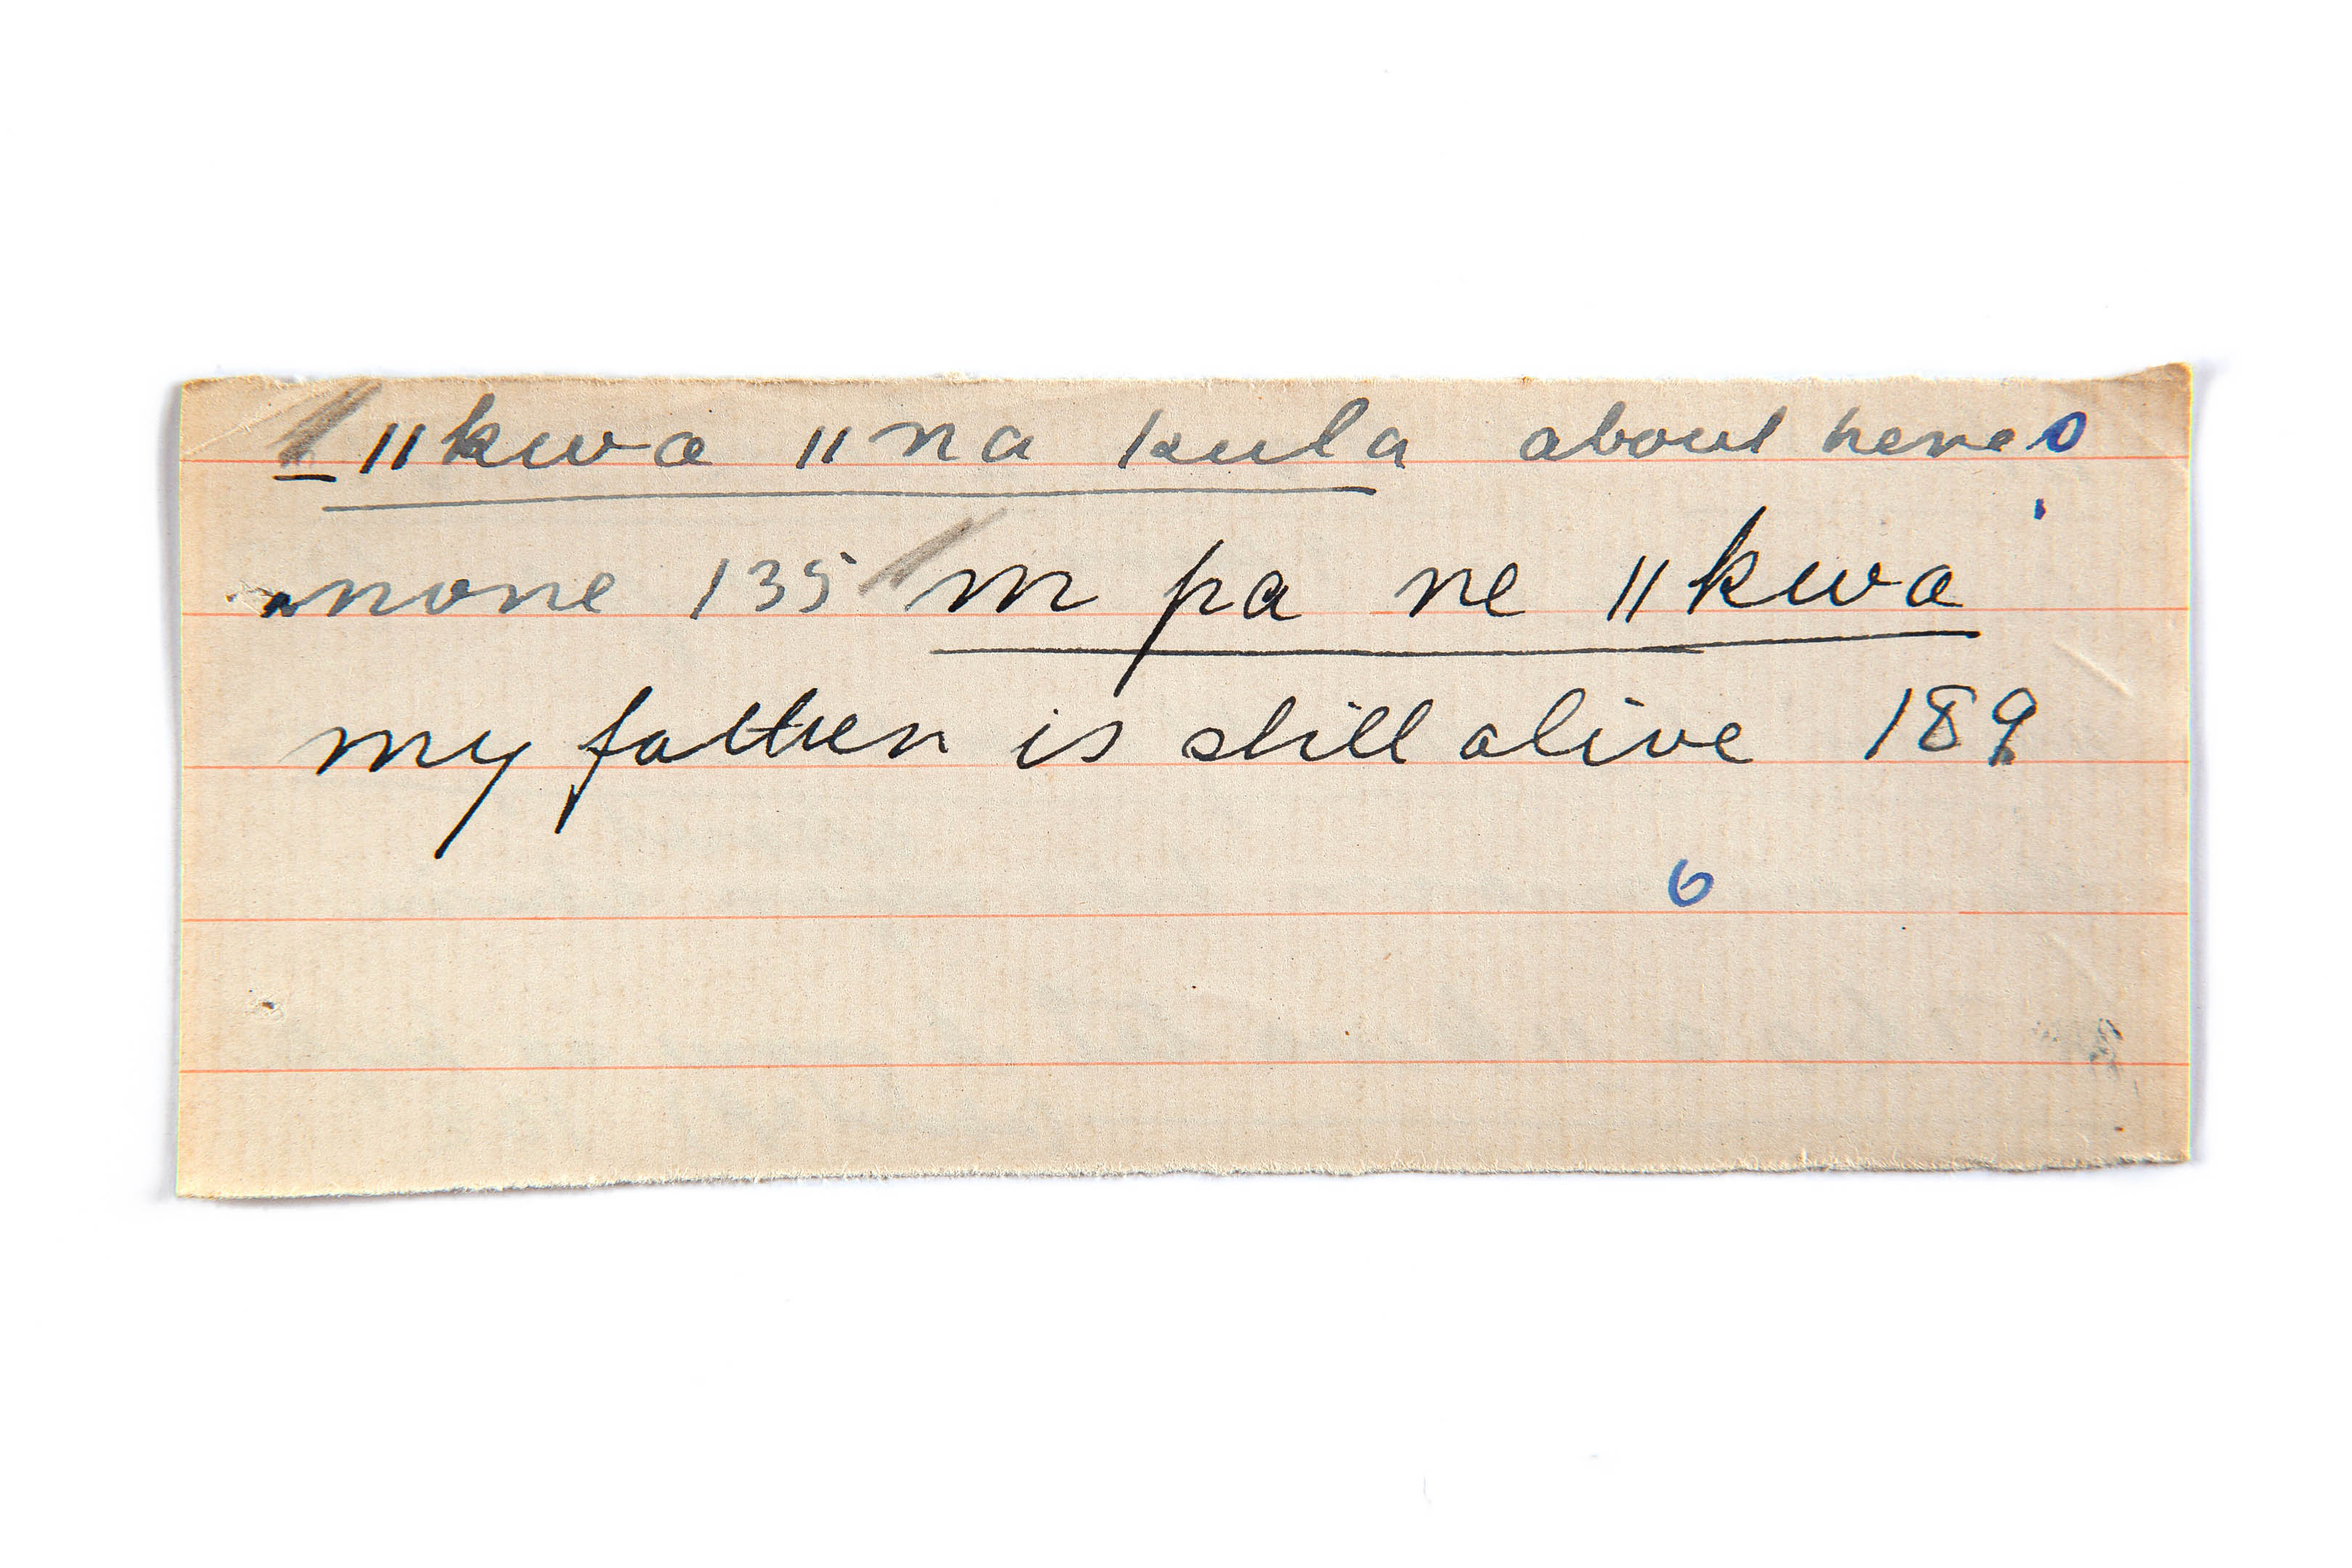 ǁkwa ǁna kula about here
none 135 m pa ne ǁkwa
my father is still alive 189
6